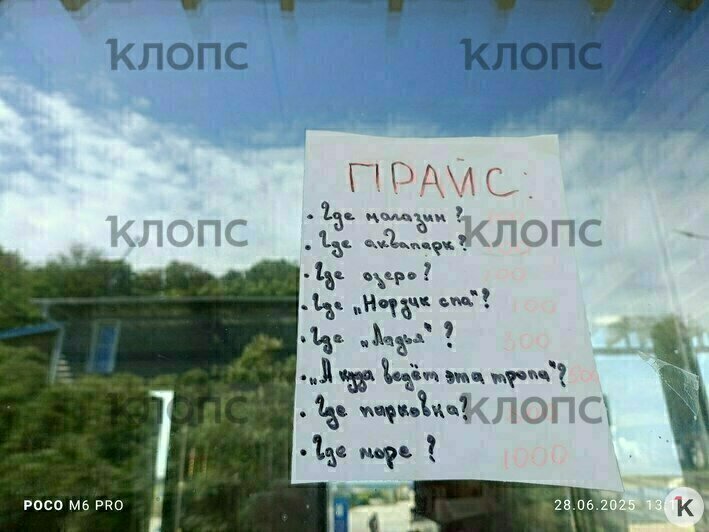 КЛОПС КЛОПС
ПРАЙС:
• Где магазин?
КЛОПС КЛОПС
• Где аквапарк?
• Где озеро? 100
• Где „Нордик спа"? 100
• Где „Ладья"? 300
• „А куда ведёт эта тропа"? 500
КЛОПС КЛОПС
• Где парковка?
• Где море? 1000
POCO M6 PRO 28.06.2025
К